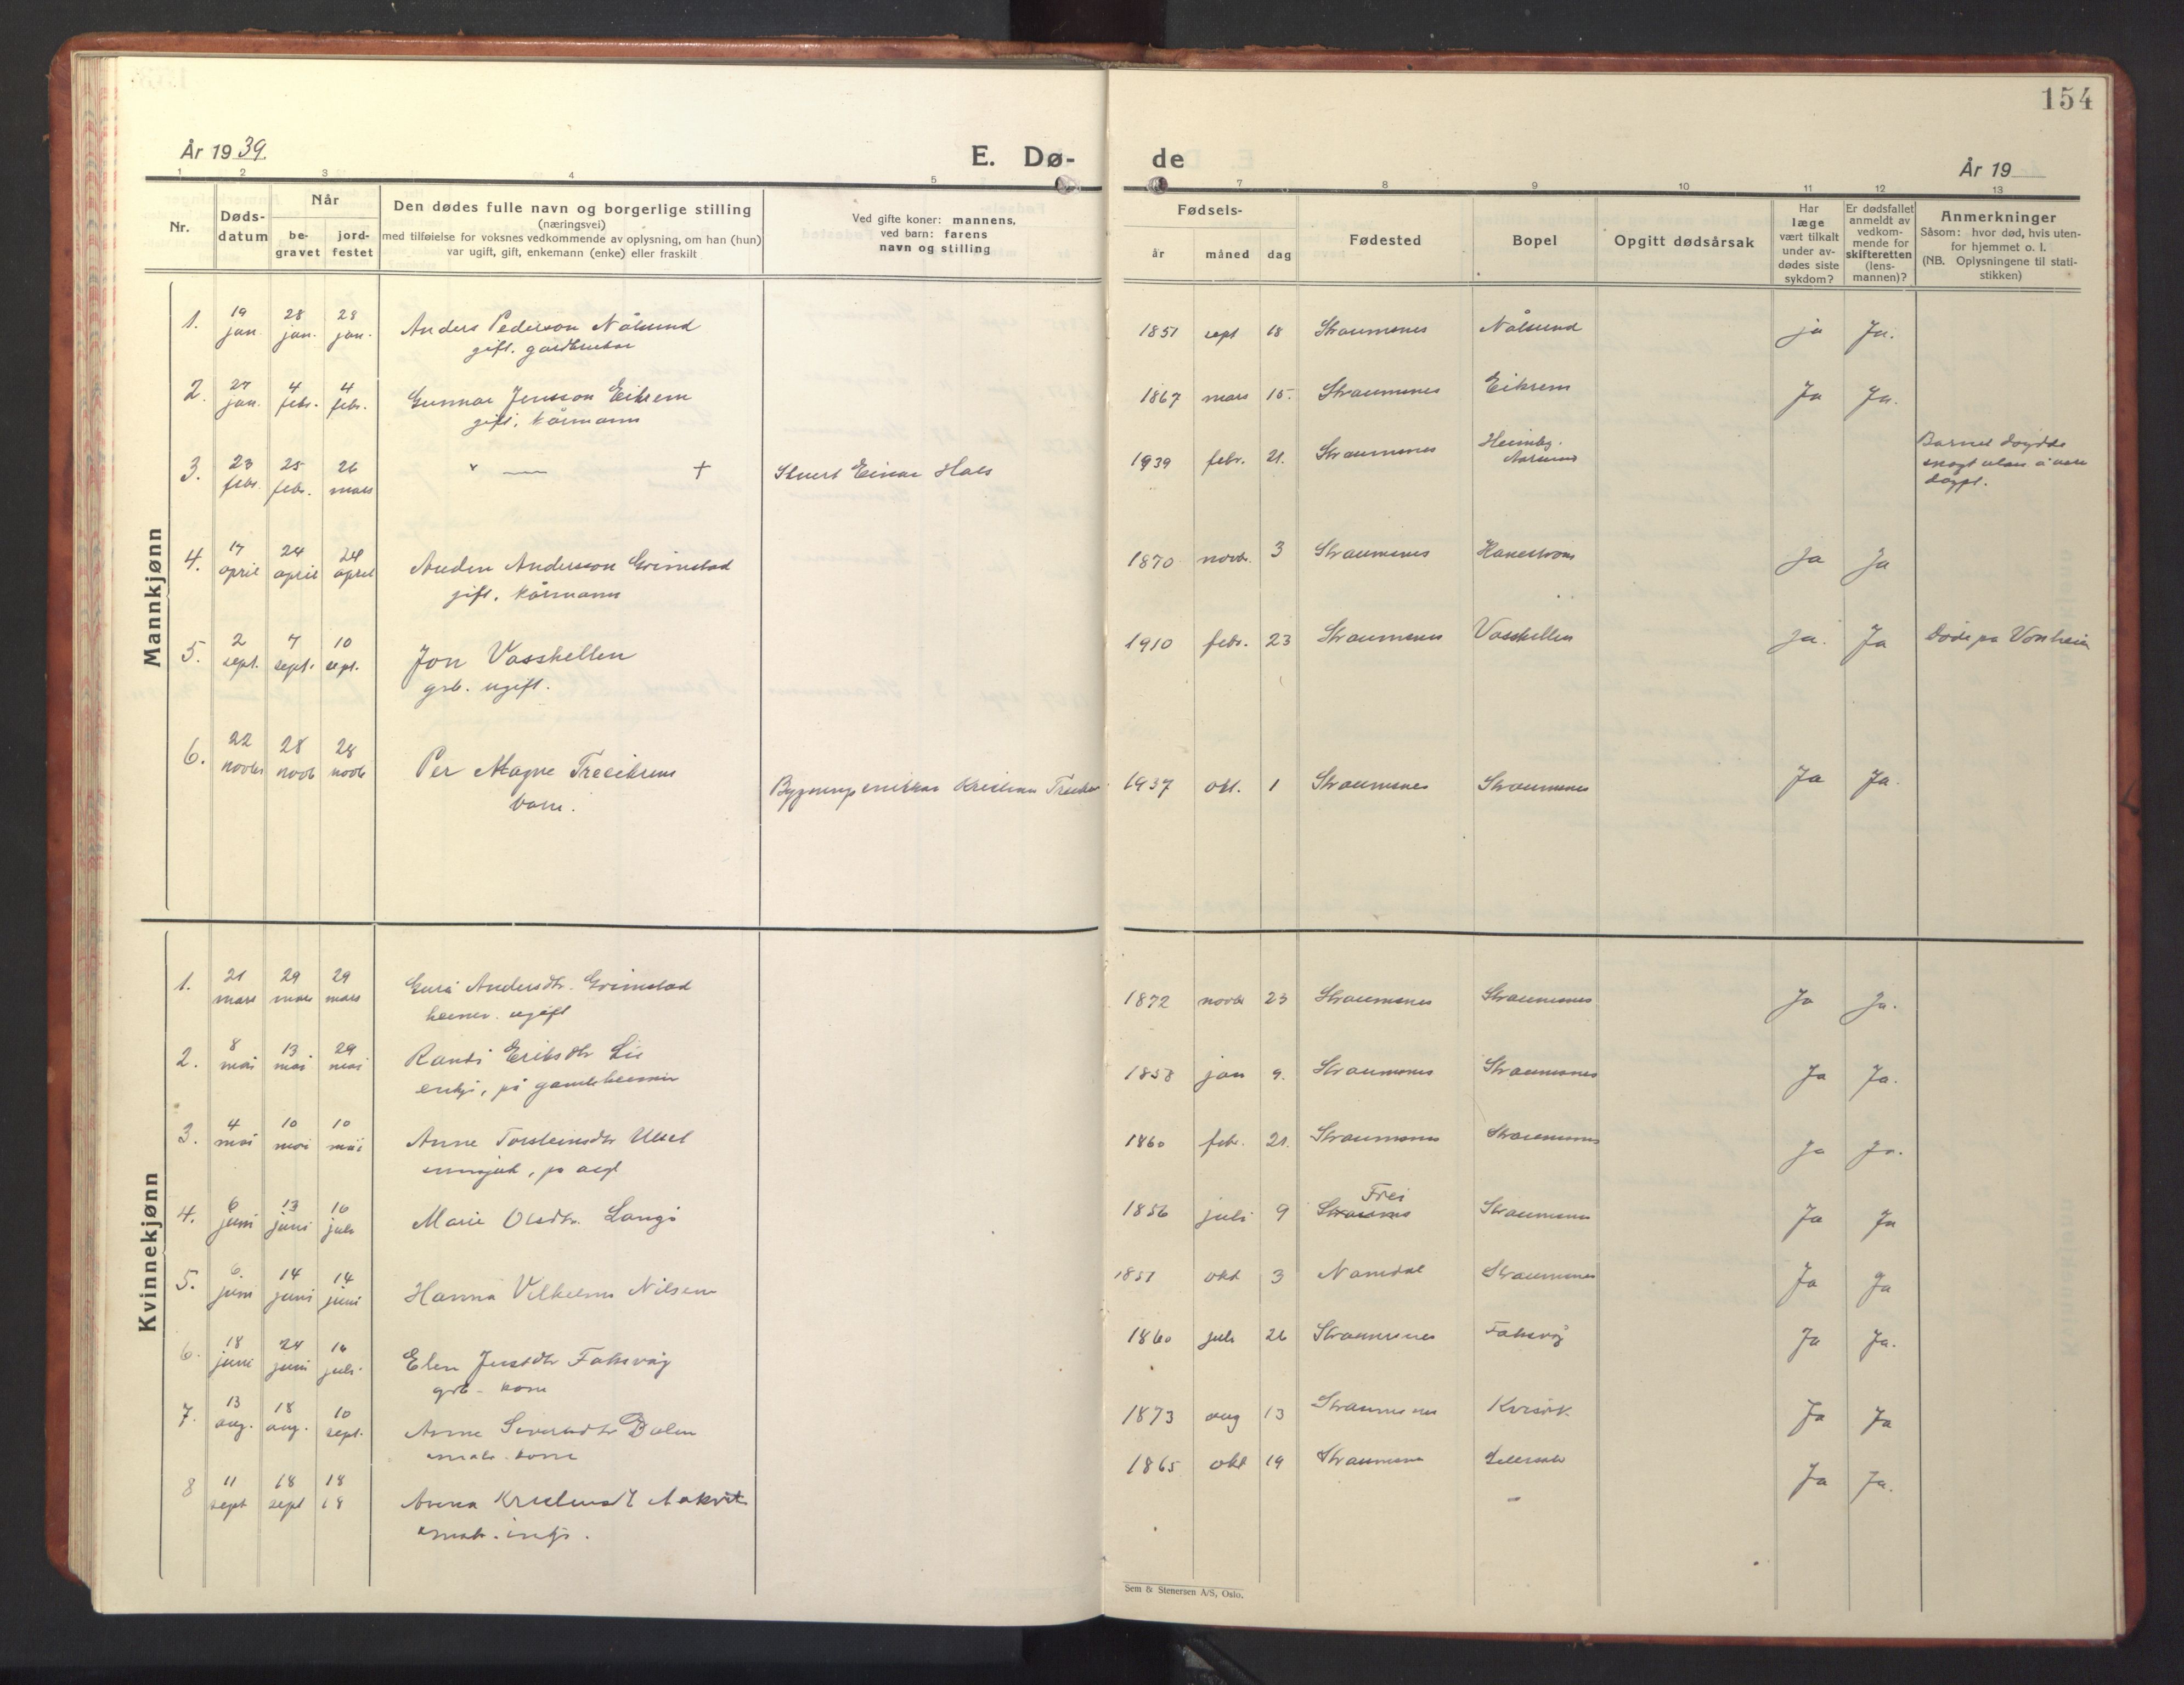 154
År 1939.
E. Dø-
de
År 19
1 2 3 4 5 7 8 9 10 11 12 13
Nr.
Døds-
datum
Når
be-
gravet
jord-
festet
Den dødes fulle navn og borgerlige stilling
(næringsvei)
med tilføielse for voksnes vedkommende av oplysning, om han (hun)
var ugift, gift, enkemann (enke) eller fraskilt
Ved gifte koner: mannens,
ved barn: farens
navn og stilling
Fødsels-
år måned dag
Fødested
Bopel
Opgitt dødsårsak
Har
læge
vært tilkalt
under av-
dødes siste
sykdom?
Er dødsfallet
anmeldt av
vedkom-
mende for
skifteretten
(lens-
mannen)?
Anmerkninger
Såsom: hvor død, hvis uten-
for hjemmet o. l.
(NB. Oplysningene til stati-
stikken)
Mannkjønn
1. 19 jan. 28 jan. 28 jan. Anders Pederson Nålsund 1851 sept 18 Straumsnes Nålsund ja Ja.
gift. gardbrukar
2. 27 jan. 4 febr. 4 febr. Gunnar Jensson Eikrem 1867 mars 15. Straumsnes Eikrem Ja Ja.
gift. kårmann
3. 23 febr. 25 febr. 26 mars " — + Einar Hals 1939 febr. 21. Straumsnes
Barnet døydde
døypt.
4. 17 april 24 april 24 april Anders Andersson Grimstad 1870 novbr. 3 Straumsnes Ja Ja
gift. kårmann
5. 2 sept. 7 sept. 10 sept. Jon Vasskellen 1910 febr. 23 Straumsnes Vasskellen ja. Ja Døde på Vonheim
grb. ugift.
6. 22 novbr 28 novb 28 novb Per Magne Treeikrem Kristian 1937 okt. 1 Straumsnes Straumsnes Ja Ja.
barn.
Kvinnekjønn
1. 21 mars 29 mars 29 mars Guri Andersdtr. Grimstad 1872 novbr 23 Straumsnes Straumsnes Ja Ja.
ugift
2. 8 mai 13 mai 29 mai Randi Eriksdtr Lie 1858 jan 9. Straumsnes Straumsnes Ja Ja.
enkje, på gamleheimen
3. 4 mai 10 mai 10 mai Anne Torsteinsdtr 1860 febr. 21. Straumsnes Straumsnes Ja Ja.
4. 6 juni 13 juni 16 juli Marie Olsdtr. Langø 1856 juli 9 Frei Straumsnes Ja Ja
5. 6. juni 14 juni 14 juni Hanna Vilhelma Nilsen 1851 okt 3 Namdal Straumsnes Ja Ja
6. 18 juni 24 juni 16 juli. Elen Jensdtr Faksvåg 1860 juli 26 Straumsnes Faksvåg Ja Ja.
grb - kone
7. 13 aug. 18 aug. 10 sept. Anne Sivertsdtr Dalen 1873 aug 13 Straumsnes Kvisvik Ja Ja
kone
8 11 sept 18 sept 18 18 Anna 1865 okt 19 Straumsnes Ja Ja.
Sem & Stenersen A/S, Oslo.